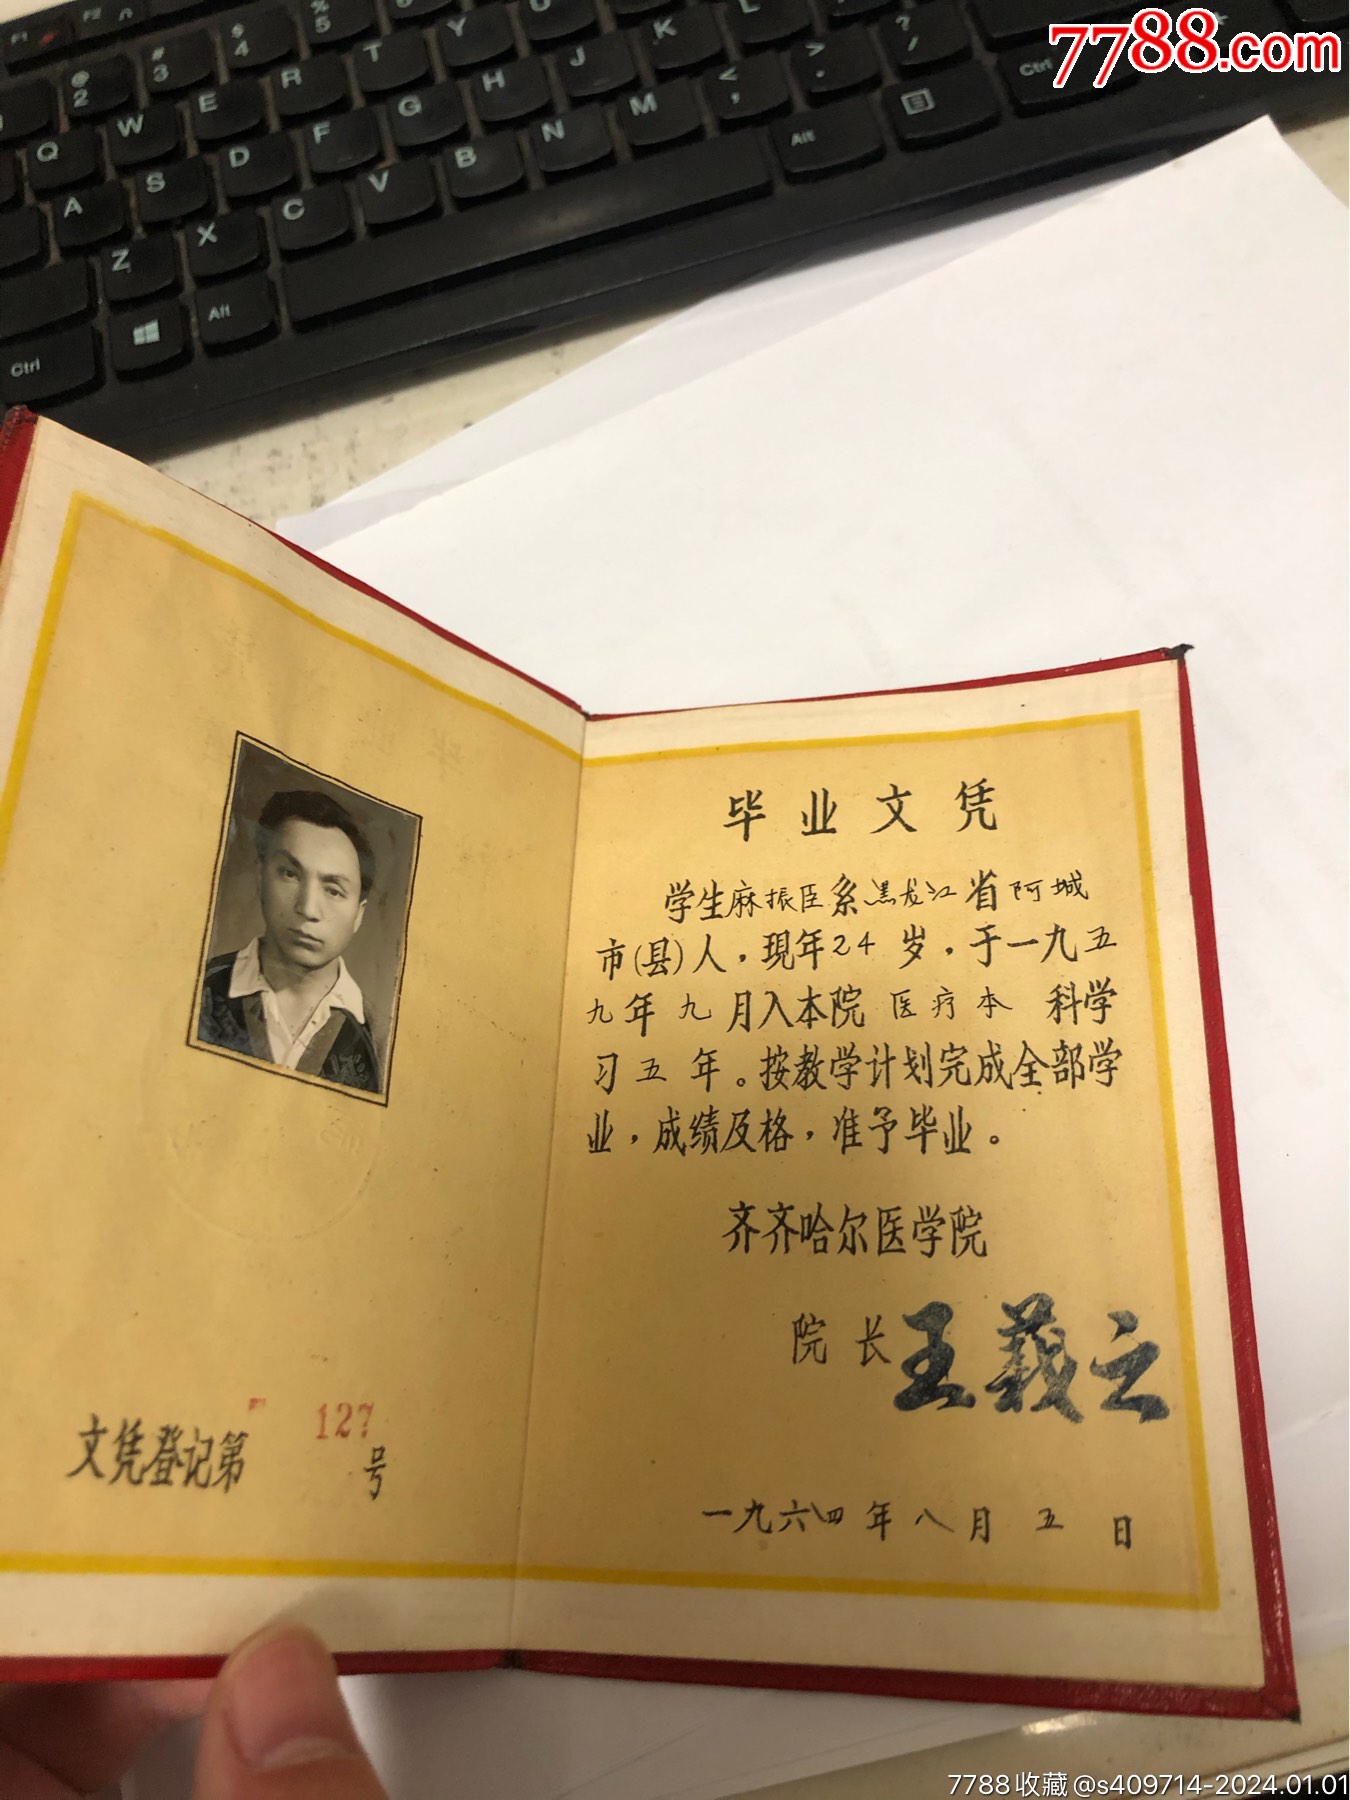 7788.com
F1
F2
@
2
#
3
$
4
%
5
Q
W
E
R
T
Y
U
A
S
D
F
G
H
J
K
Z
X
C
V
B
N
M
<
,
>
.
?
/
Ctrl
Alt
Alt
Ctrl
毕业文凭
学生麻振臣系黑龙江省阿城
市(县)人，現年24岁，于一九五
九年九月入本院医疗本科学
习五年。按教学计划完成全部学
业，成绩及格，准予毕业。
齐齐哈尔医学院
院长王義云
一九六四年八月五日
文凭登记第127号
7788收藏@s409714-2024.01.01